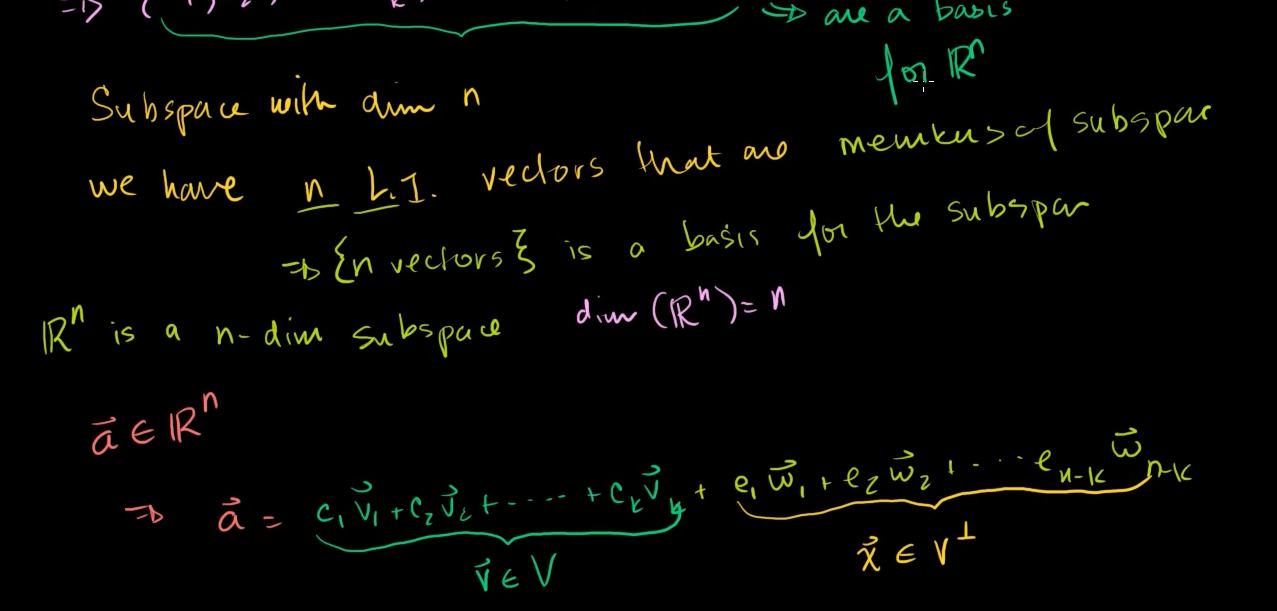 ⇒ are a basis
for ℝⁿ
Subspace with dim n
we have n L.I. vectors that are members of subspac
⇒ {n vectors} is a basis for the subspac
ℝⁿ is a n-dim subspace dim (ℝⁿ) = n
a⃗ ∈ ℝⁿ
⇒ a⃗ = c₁v⃗₁ + c₂v⃗₂ + ····· + cₖv⃗ₖ + e₁w⃗₁ + e₂w⃗₂ + ···· eₙ₋ₖ w⃗ₙ₋ₖ
v⃗ ∈ V x⃗ ∈ V^⊥